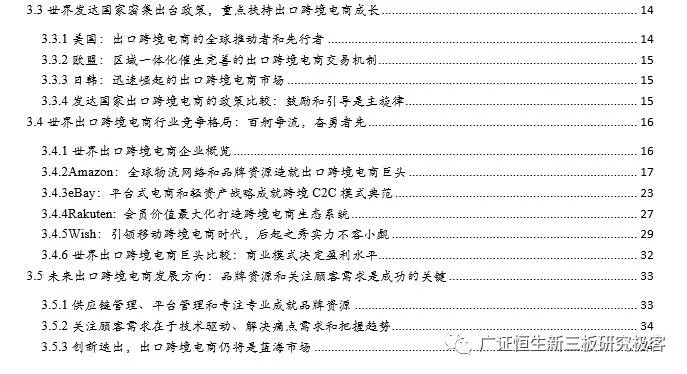 3.3 世界发达国家密集出台政策，重点扶持出口跨境电商成长 14
3.3.1 美国：出口跨境电商的全球推动者和先行者 14
3.3.2 欧盟：区域一体化催生完善的出口跨境电商交易机制 15
3.3.3 日韩：迅速崛起的出口跨境电商市场 15
3.3.4 发达国家出口跨境电商的政策比较：鼓励和引导是主旋律 15
3.4 世界出口跨境电商行业竞争格局：百舸争流，奋勇者先 16
3.4.1 世界出口跨境电商企业概览 16
3.4.2Amazon：全球物流网络和品牌资源造就出口跨境电商巨头 17
3.4.3eBay：平台式电商和轻资产战略成就跨境 C2C 模式典范 23
3.4.4Rakuten: 会员价值最大化打造跨境电商生态系统 27
3.4.5Wish：引领移动跨境电商时代，后起之秀实力不容小觑 29
3.4.6 世界出口跨境电商巨头比较：商业模式决定盈利水平 32
3.5 未来出口跨境电商发展方向：品牌资源和关注顾客需求是成功的关键 33
3.5.1 供应链管理、平台管理和专注专业成就品牌资源 33
3.5.2 关注顾客需求在于技术驱动、解决痛点需求和把握趋势 34
3.5.3 创新迭出，出口跨境电商仍将是蓝海市场
广证恒生新三板研究极客